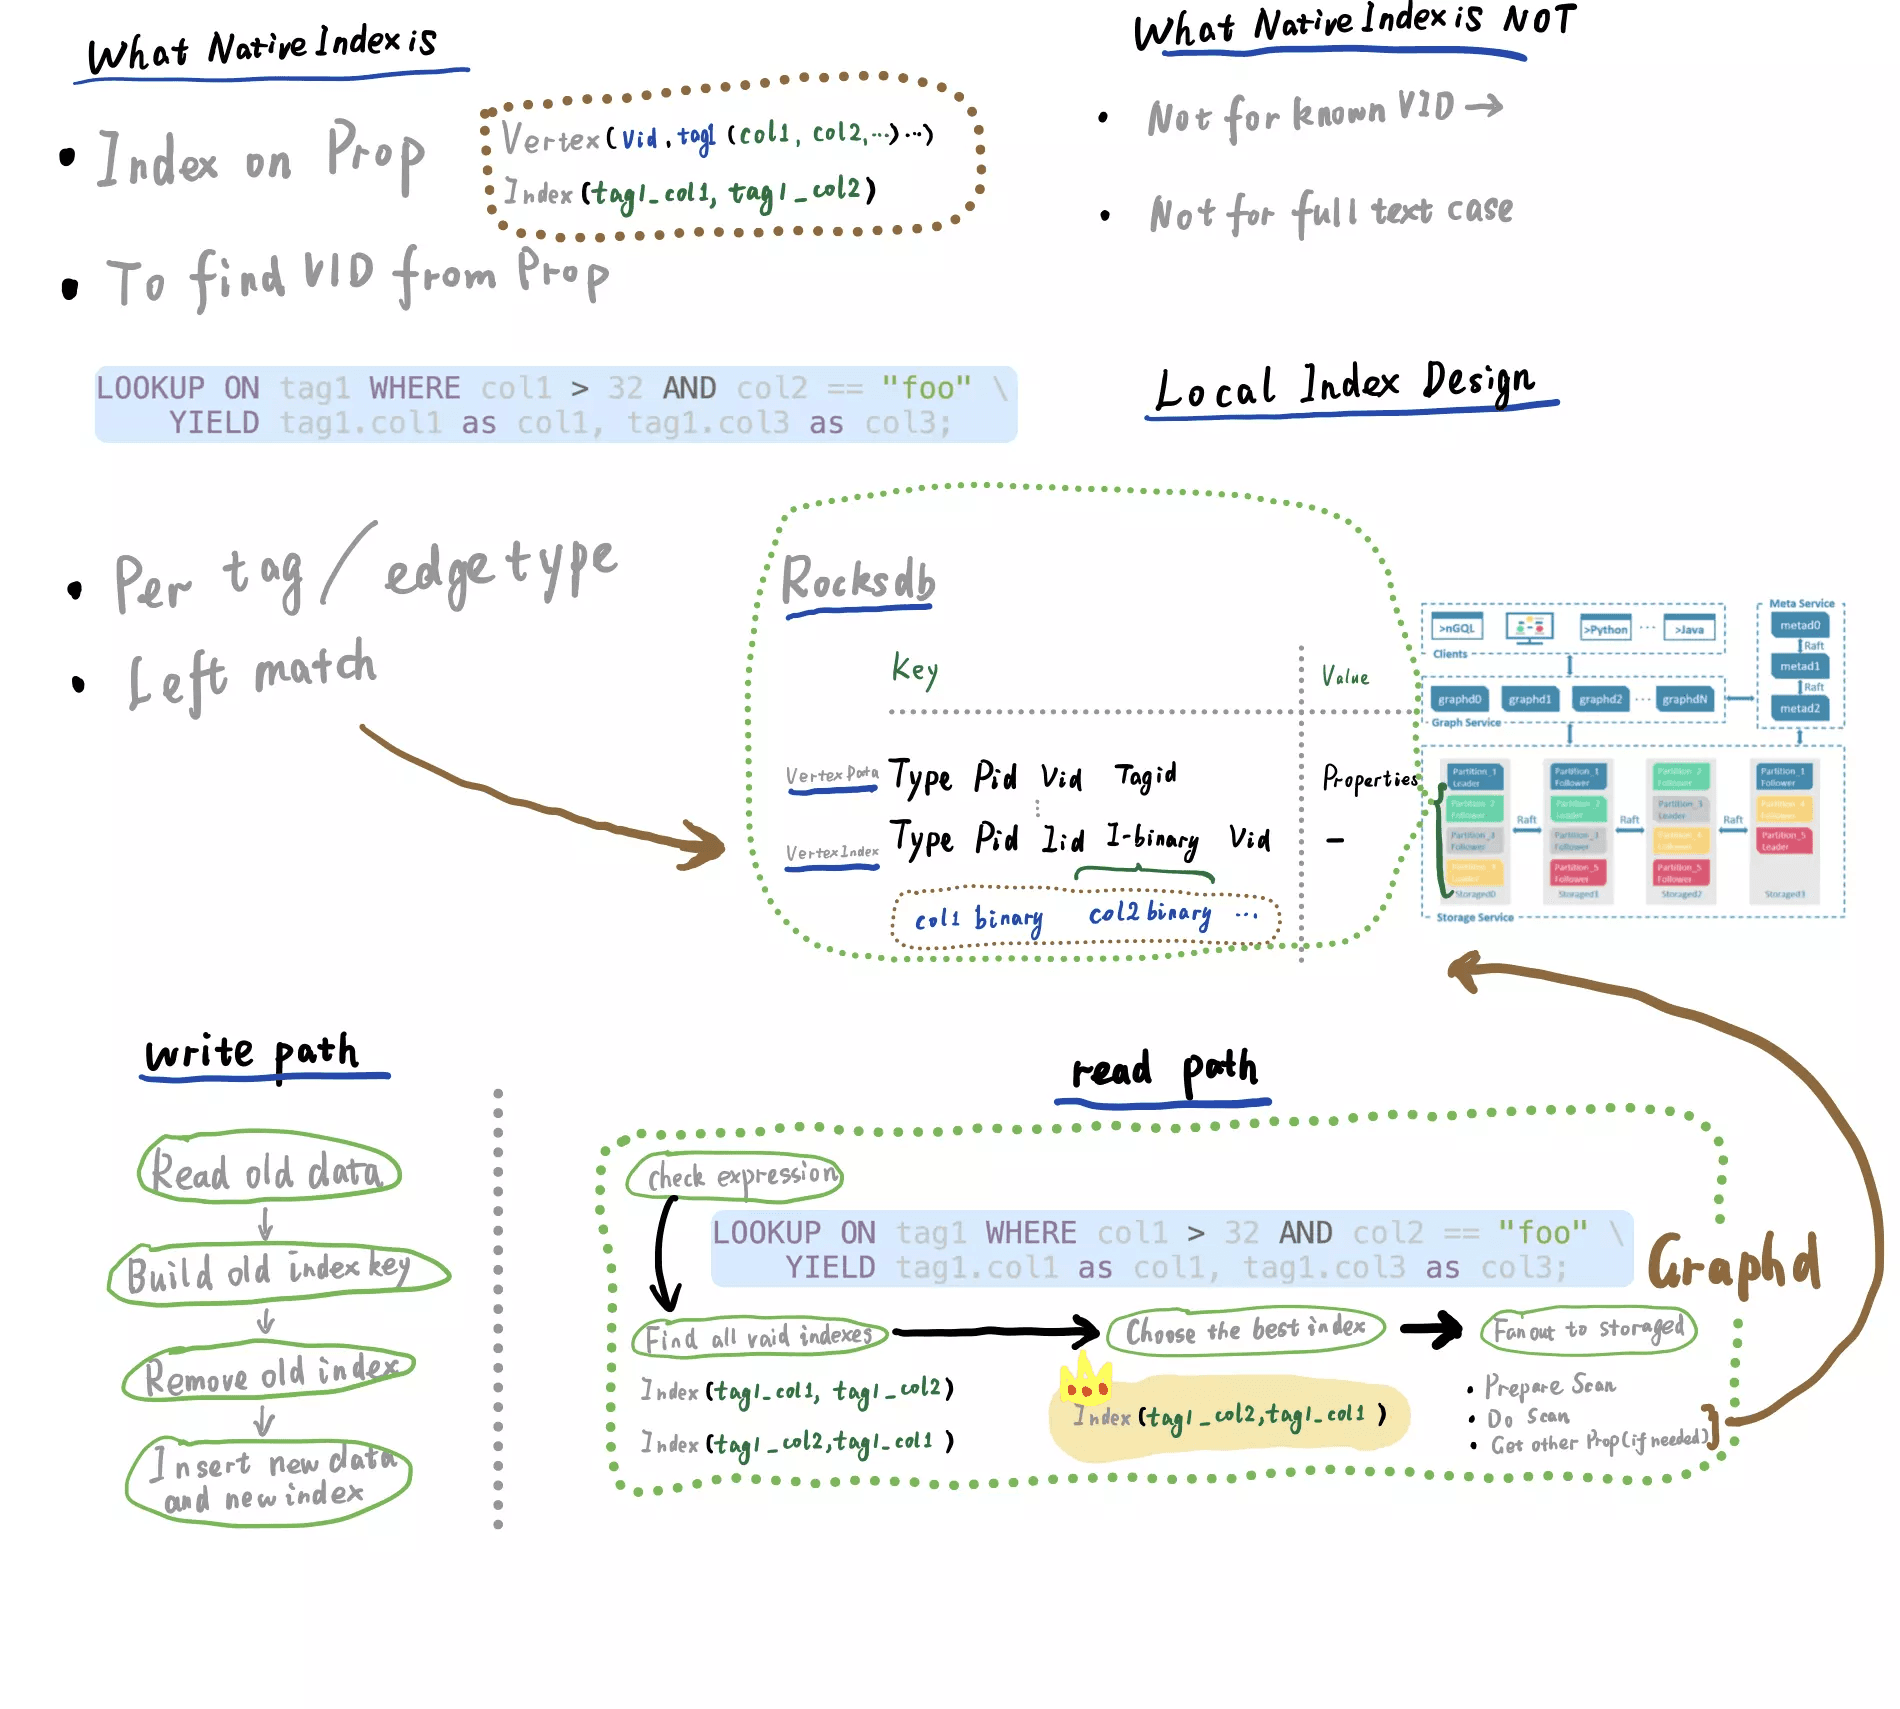 What Native Index is
• Index on Prop
Vertex(Vid, tag1 (col1, col2,...)...)
Index(tag1_col1, tag1_col2)
• To find VID from Prop
LOOKUP ON tag1 WHERE col1 > 32 AND col2 == "foo" \
YIELD tag1.col1 as col1, tag1.col3 as col3;
• Per tag / edge type
• Left match
What Native Index is NOT
• Not for known VID →
• Not for full text case
Local Index Design
Rocksdb
Key
Value
Vertex Data Type Pid Vid Tagid Properties
Vertex Index Type Pid Iid I-binary Vid -
col1 binary col2 binary ...
>nGQL >Python ... >Java
Clients
graphd0 graphd1 graphd2 ... graphdN
Graph Service
Meta Service
metad0
Raft
metad1
Raft
metad2
Partition_1 Leader
Partition_2 Follower
Partition_3 Follower
Partition_4 Leader
Storaged0
Raft
Partition_1 Follower
Partition_2 Leader
Partition_3 Follower
Partition_5 Follower
Storaged1
Raft
Partition_2 Follower
Partition_3 Leader
Partition_4 Follower
Partition_5 Follower
Storaged2
Raft
Partition_1 Follower
Partition_4 Follower
Partition_5 Leader
Storaged3
Storage Service
write path
Read old data
Build old index key
Remove old index
Insert new data
and new index
read path
check expression
LOOKUP ON tag1 WHERE col1 > 32 AND col2 == "foo" \
YIELD tag1.col1 as col1, tag1.col3 as col3;
Graphd
Find all vaid indexes
Index(tag1_col1, tag1_col2)
Index(tag1_col2,tag1_col1)
Choose the best index
Index(tag1_col2,tag1_col1)
Fan out to storaged
• Prepare Scan
• Do Scan
• Get other Prop(if needed)